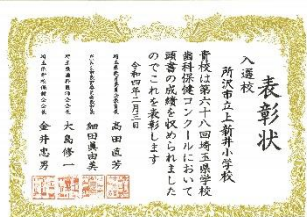 表彰状
入選校
所沢市立上新井小学校
貴校は第六十八回埼玉県学校
歯科保健コンクールにおいて
頭書の成績を収められました
のでこれを表彰します
令和四年二月三日
埼玉県教育委員会教育長 高田直芳
細田眞由美
大島修一
金井忠男